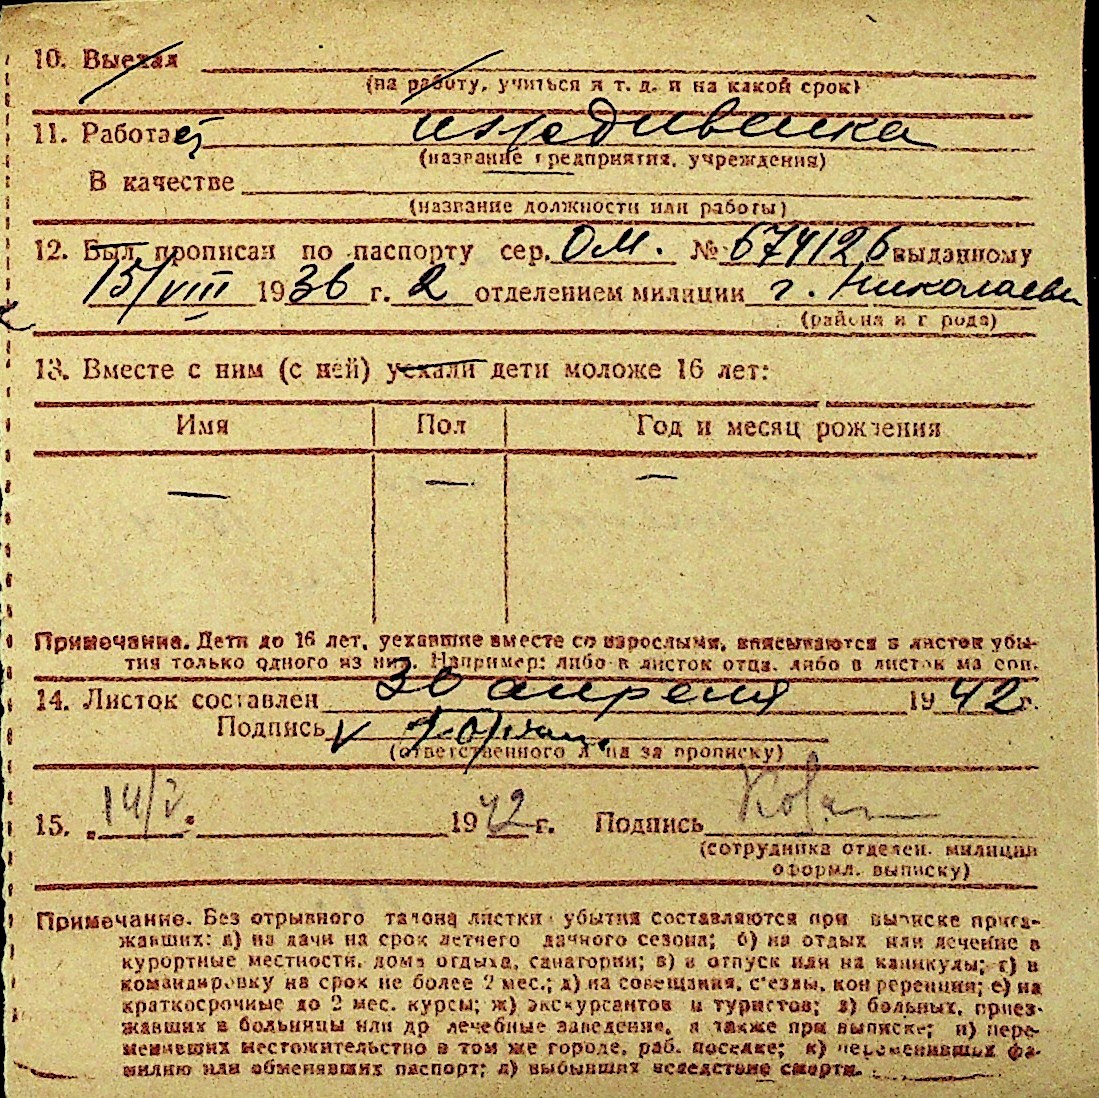 10. Выехал
(на работу, учиться и т. д. и на какой срок)
11. Работает иждивенка
(название предприятия, учреждения)
В качестве
(название должности или работы)
12. Был прописан по паспорту сер. ОМ. № 674126 выданному
15/VIII 1936 г. 2 отделением милиции г. Николаева
(района и города)
13. Вместе с ним (с ней) уехали дети моложе 16 лет:
Имя Пол Год и месяц рождения
— — —
Примечание. Дети до 16 лет, уехавшие вместе со взрослыми, вписываются в листок убы-
тия только одного из них. Например: либо в листок отца, либо в листок матери.
14. Листок составлен 30 апреля 1942 г.
Подпись
(ответственного лица за прописку)
15. 14/V 1942 г. Подпись
(сотрудника отделен. милиции
оформл. выписку)
Примечание. Без отрывного талона листки убытия составляются при выписке приез-
жавших: а) на дачи на срок летнего дачного сезона; б) на отдых или лечение в
курортные местности, дома отдыха, санатории; в) в отпуск или на каникулы; г) в
командировку на срок не более 2 мес.; д) на совещания, съезды, конференции; е) на
краткосрочные до 2 мес. курсы; ж) экскурсантов и туристов; з) больных, приез-
жавших в больницы или др лечебные заведения, а также при выписке; и) пере-
менивших местожительство в том же городе, раб. поселке; к) переменивших фа-
милию или обменявших паспорт; л) выбывших вследствие смерти.